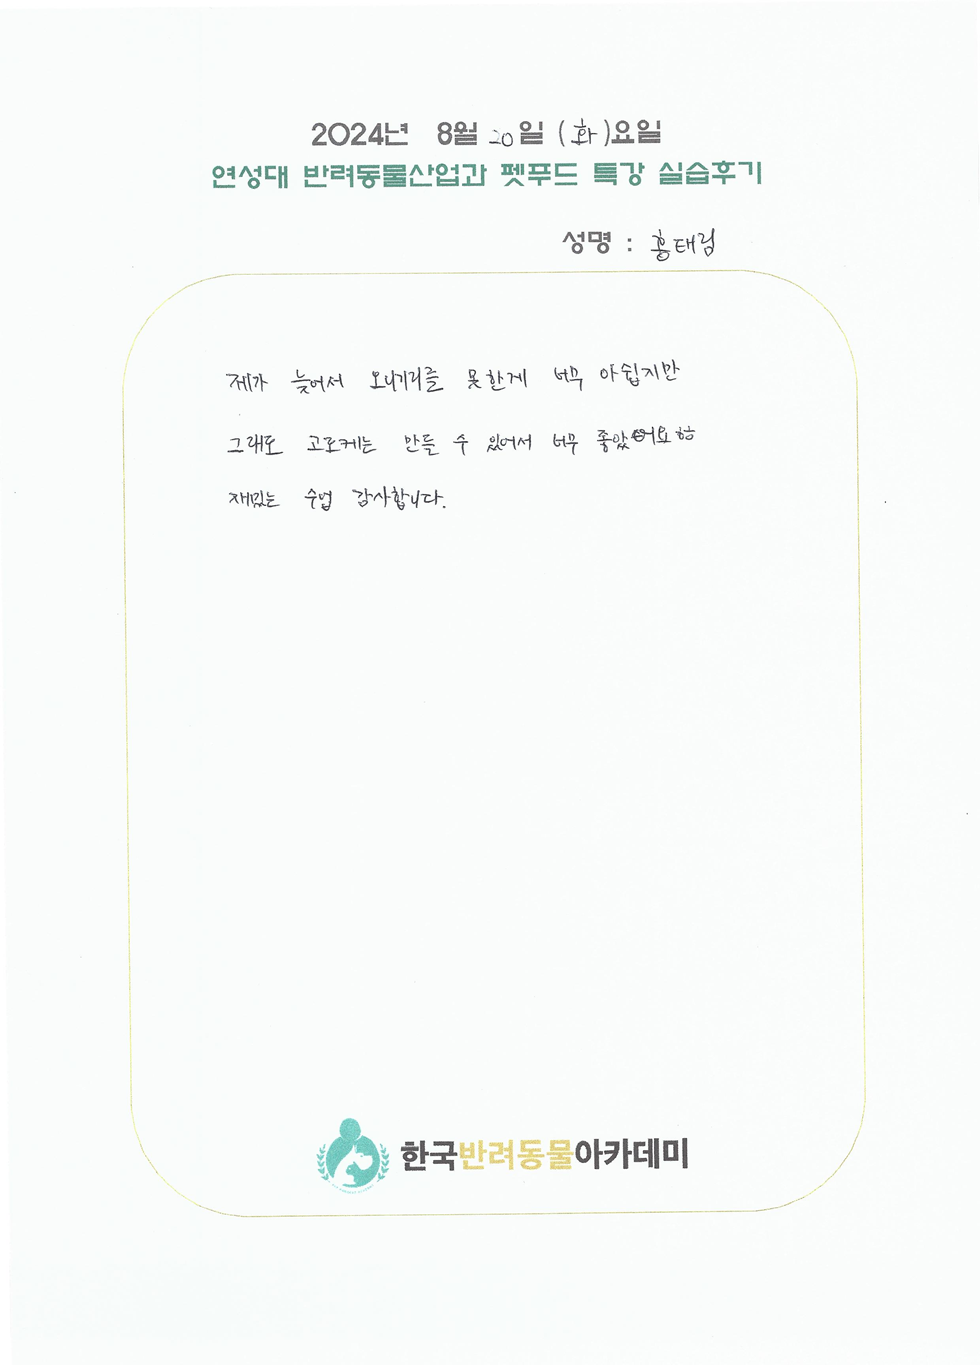 2024년 8월 20일 (화)요일
연성대 반려동물산업과 펫푸드 특강 실습후기
성명 : 홍태림
제가 늦어서 오니기리를 못한게 너무 아쉽지만
그래도 고로케는 만들 수 있어서 너무 좋았어요ㅎㅎ
재밌는 수업 감사합니다.
한국반려동물아카데미